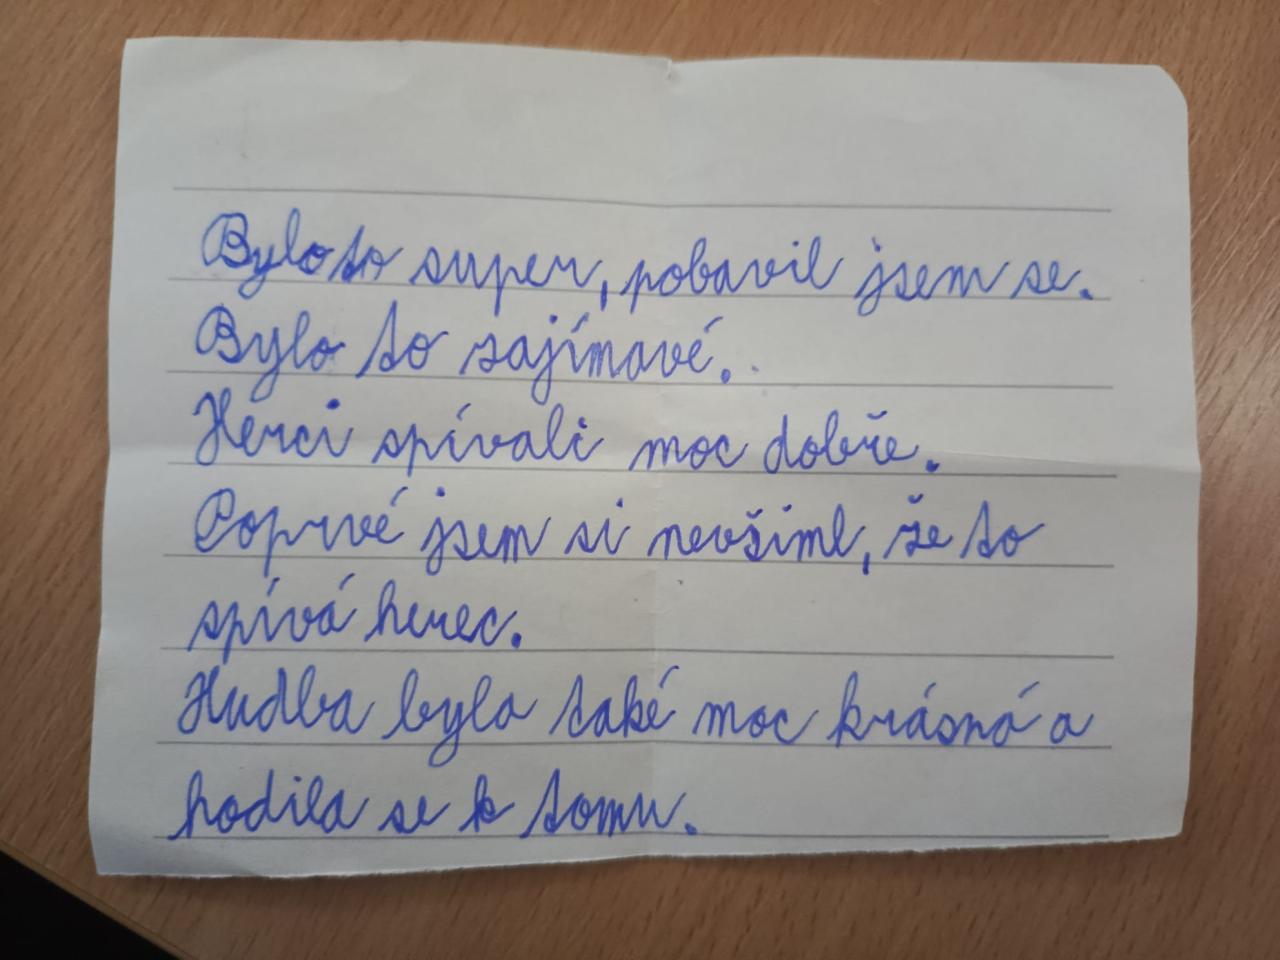 Bylo to super, pobavil jsem se.
Bylo to zajímavé.
Herci spívali moc dobře.
Poprvé jsem si nevšiml, že to
spívá herec.
Hudba byla také moc krásná a
hodila se k tomu.